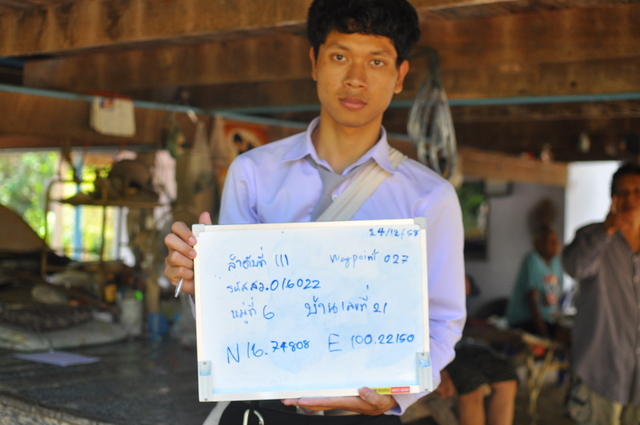 24/12/58
ลำดับที่ 111 Waypoint 027
รหัสสว.016022
หมู่ที่ 6 บ้านเลขที่ 21
N 16.74808 E 100.22150